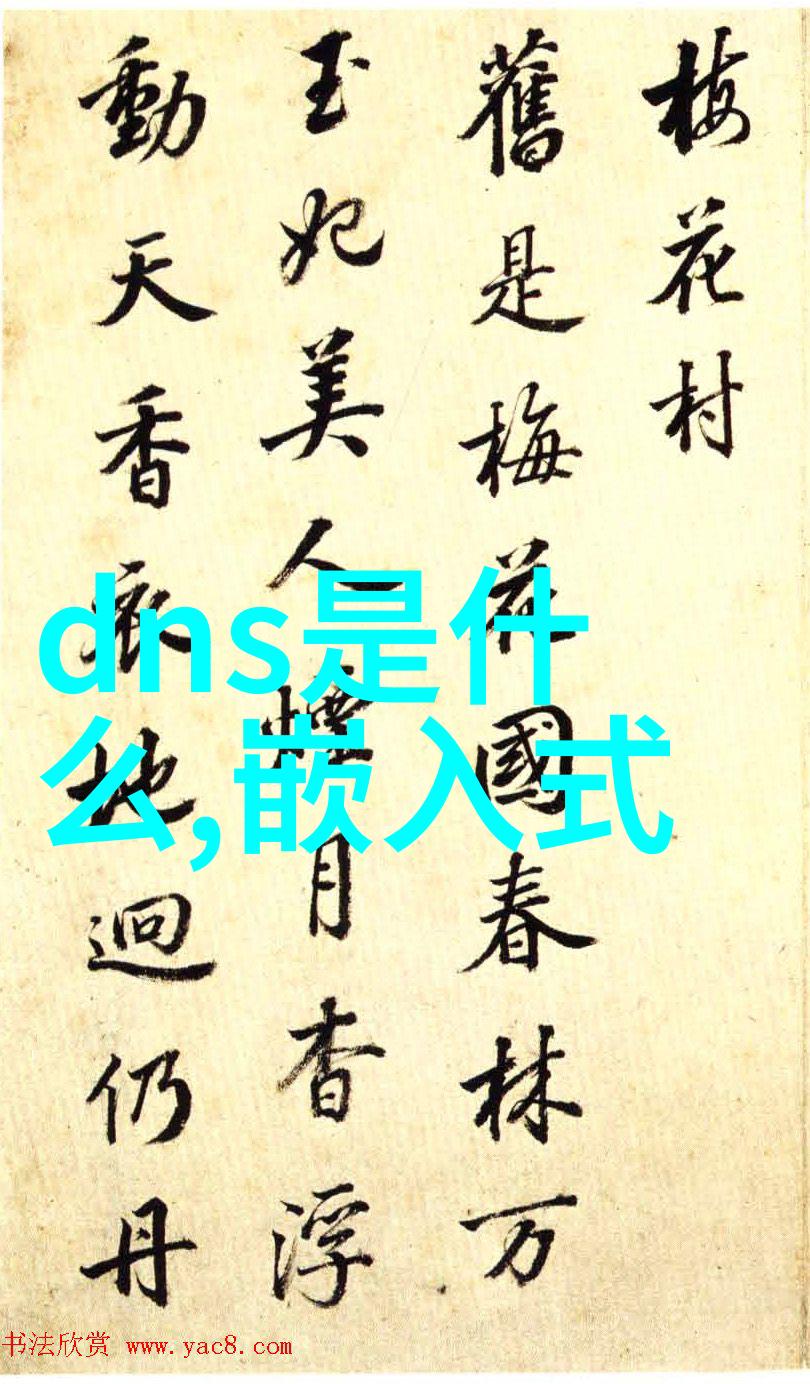 梅花村
舊是梅花國春林万
玉妃美人煙月杳浮
動天香地迥仍丹
dns是什
么,嵌入式
书法欣赏 www.yac8.com